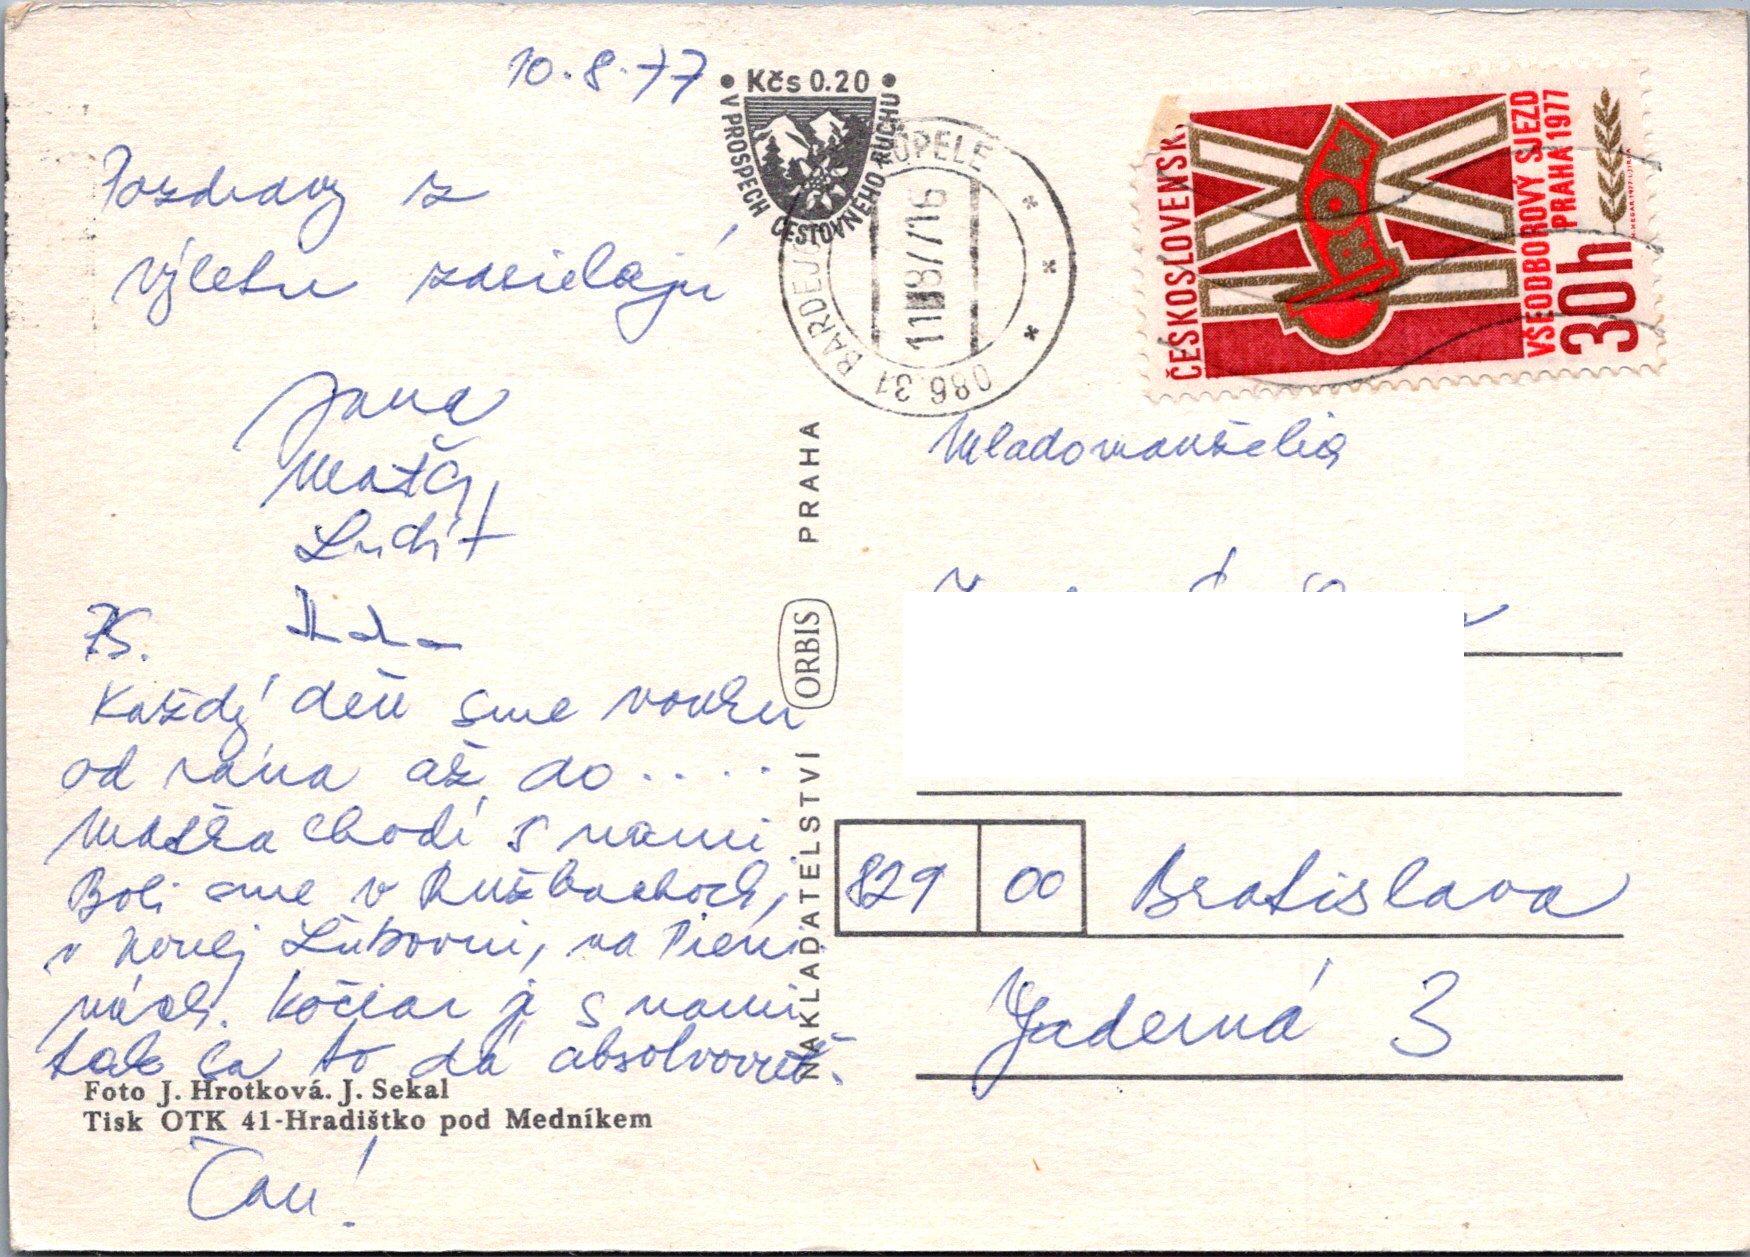 10.8.77
Pozdravy z
výletu zasielajú
Jana
Maťa,
Ludit
PS.
Každý deň sme vonku
od rána až do.....
Maťka chodí s nami.
Boli sme v Ružbachoch,
v Novej Ľubovni, na Pieni
nách. Kočiar je s nami
tak sa to dá absolvovať.
Foto J. Hrotková. J. Sekal
Tisk OTK 41-Hradištko pod Medníkem
Čau!
NAKLADATELSTVÍ ORBIS PRAHA
• Kčs 0.20 •
V PROSPECH CESTOVNÉHO RUCHU
086 31 BARDEJ KÚPELE
11.8.77-16
ČESKOSLOVENSK
VŠEODBOROVÝ SJEZD
PRAHA 1977
30h
Mladomanželia
829 00 Bratislava
Jaderná 3